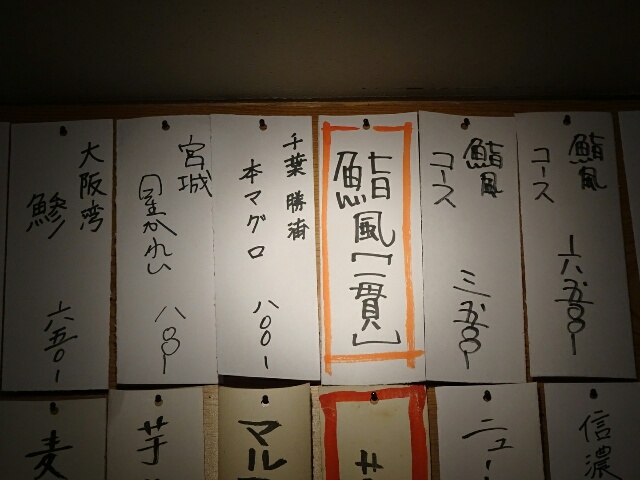 鮨風
コース
六、五〇〇ー
鮨風
コース
三、五〇〇ー
鮨風【一貫】
千葉 勝浦
本マグロ
八〇〇ー
宮城
星かれい
八〇〇ー
大阪湾
鯵
六五〇ー
信濃
ニュー
サ
マル
芋
麦